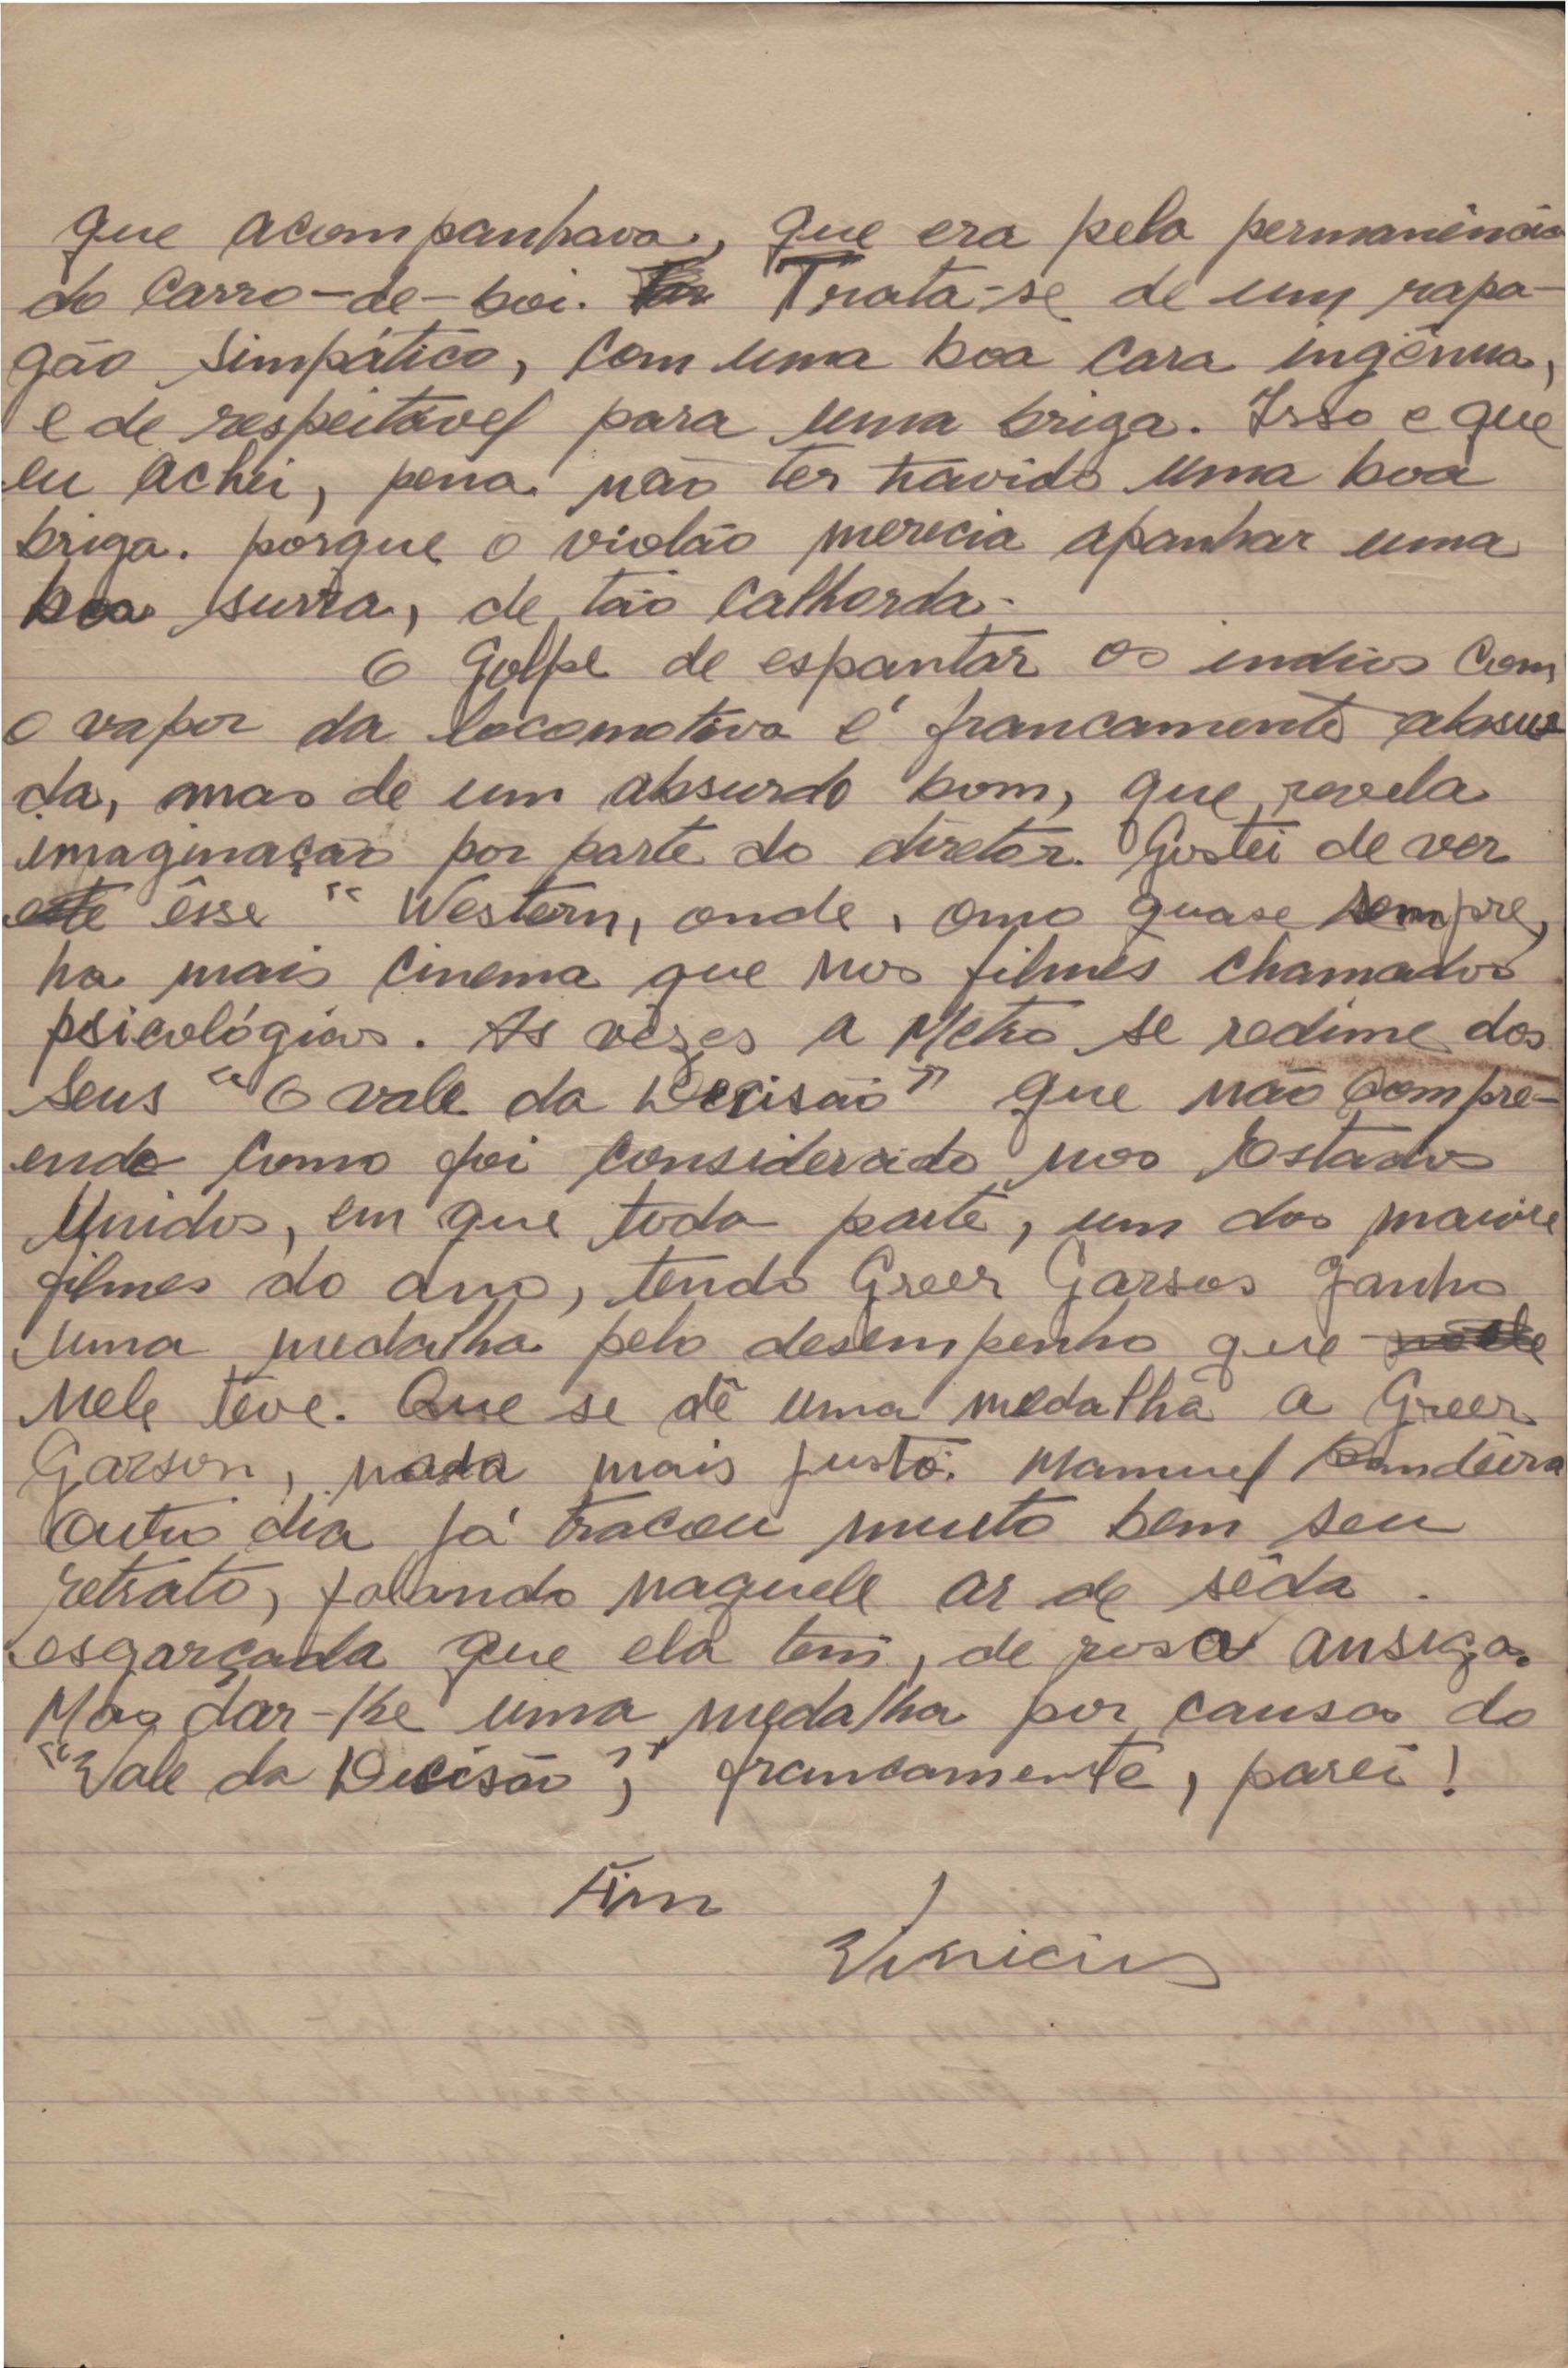 que acompanhava, que era pela permanência
do carro-de-boi. Trata-se de um rapa-
gão simpático, com uma boa cara ingênua,
e de respeitável para uma briga. Isso e que
eu achei, pena não ter havido uma boa
briga. porque o violão merecia apanhar uma
boa surra, de tão calhorda.
O golpe de espantar os indios com
o vapor da locomotiva é francamente absur
da, mas de um absurdo bom, que revela
imaginação por parte do diretor. Gostei de ver
este êsse "Western, onde, omo quase sempre,
ha mais cinema que nos filmes chamados
psicológicos. As vêzes a Metro se redime dos
seus "O vale da Decisão" que não compre-
endo como foi considerado nos Estados
Unidos, em que toda parte, um dos maiore
filmes do ano, tendo Greer Garson ganho
uma medalha pelo desempenho que
nele teve. Que se dê uma medalha a Greer
Garson, nada mais justo. Manuel Bandeira
outro dia já tracou muito bem seu
retrato, falando naquele ar de sêda
esgarçada que ela tem, de rosa
Mas dar-lhe uma medalha por causa do
"Vale da Decisão", francamente, parei!
Fim
Vinicius